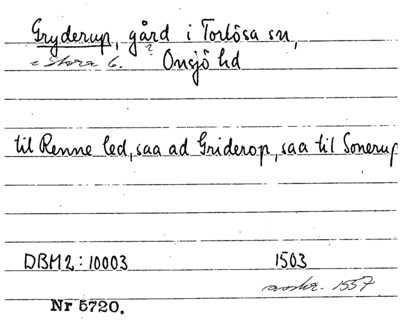 Gryderup, gård i Torlösa sn,
= Stora 6. ? Onsjö hd
til Renne led, saa ad Griderop, saa til Sonerup
DBM2:10003 1503
avskr. 1557
Nr 5720.